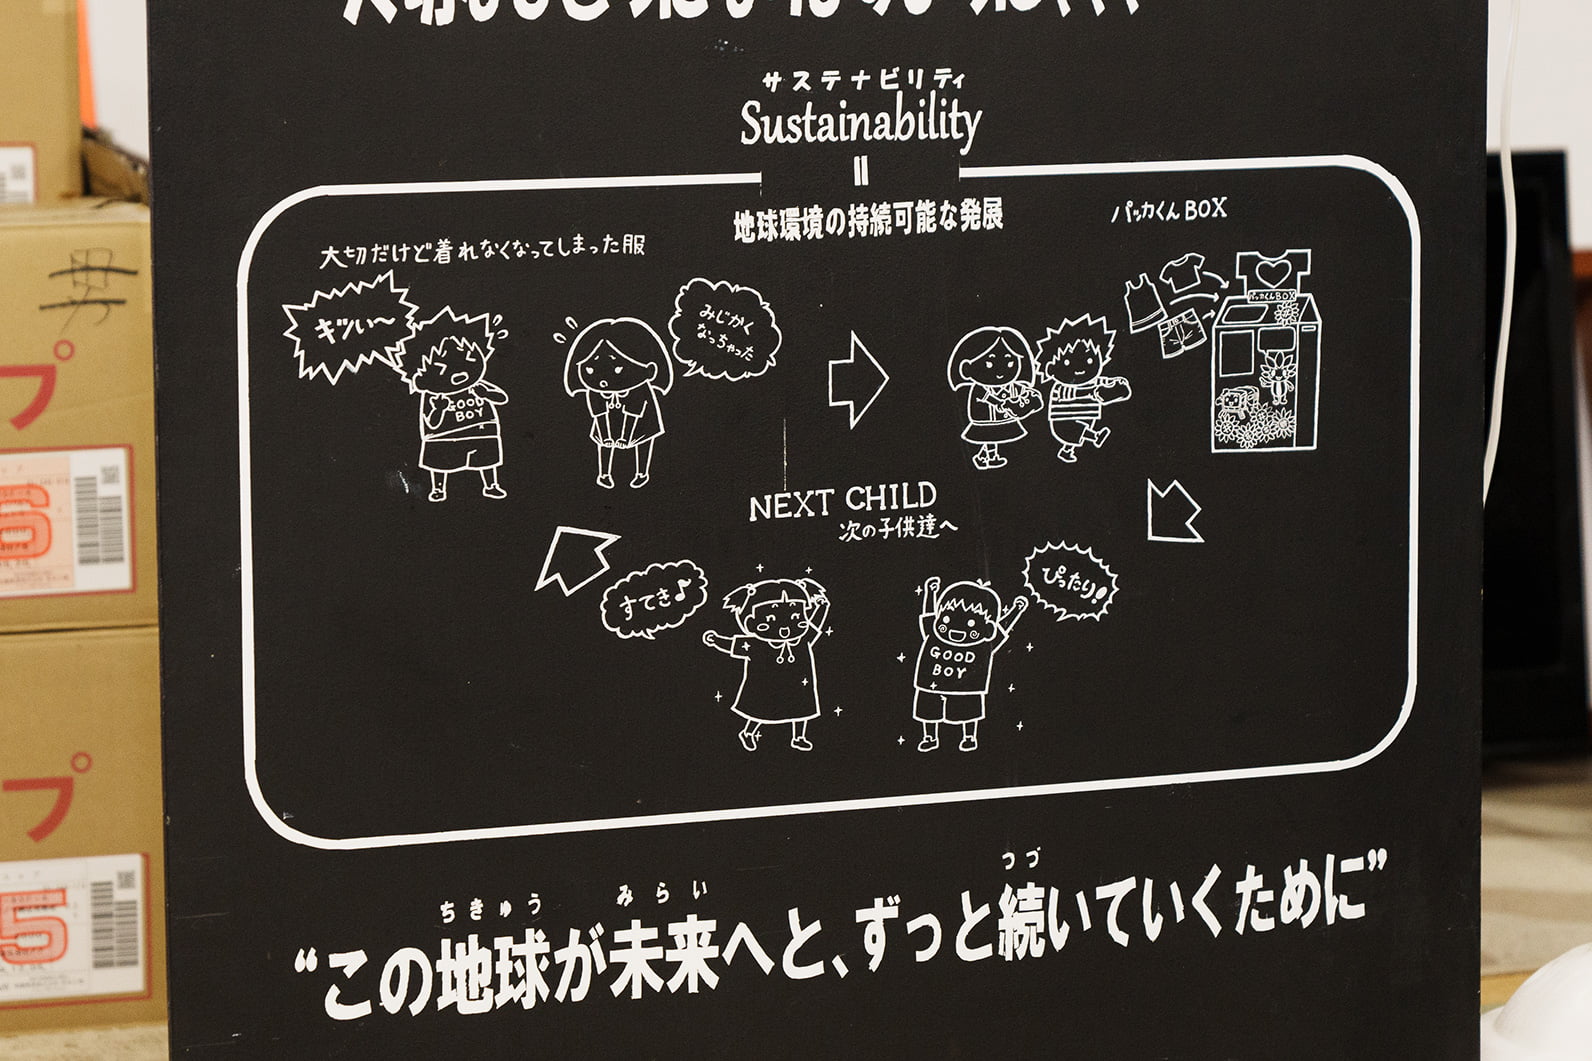 サステナビリティ
Sustainability
=
地球環境の持続可能な発展
パッカくんBOX
大切だけど着れなくなってしまった服
キツい〜
みじかく
なっちゃった
パッカくんBOX
GOOD
BOY
NEXT CHILD
次の子供達へ
すてき♪
ぴったり!
GOOD
BOY
ちきゅう みらい つづ
“この地球が未来へと、ずっと続いていくために”
男
プ
6
プ
5